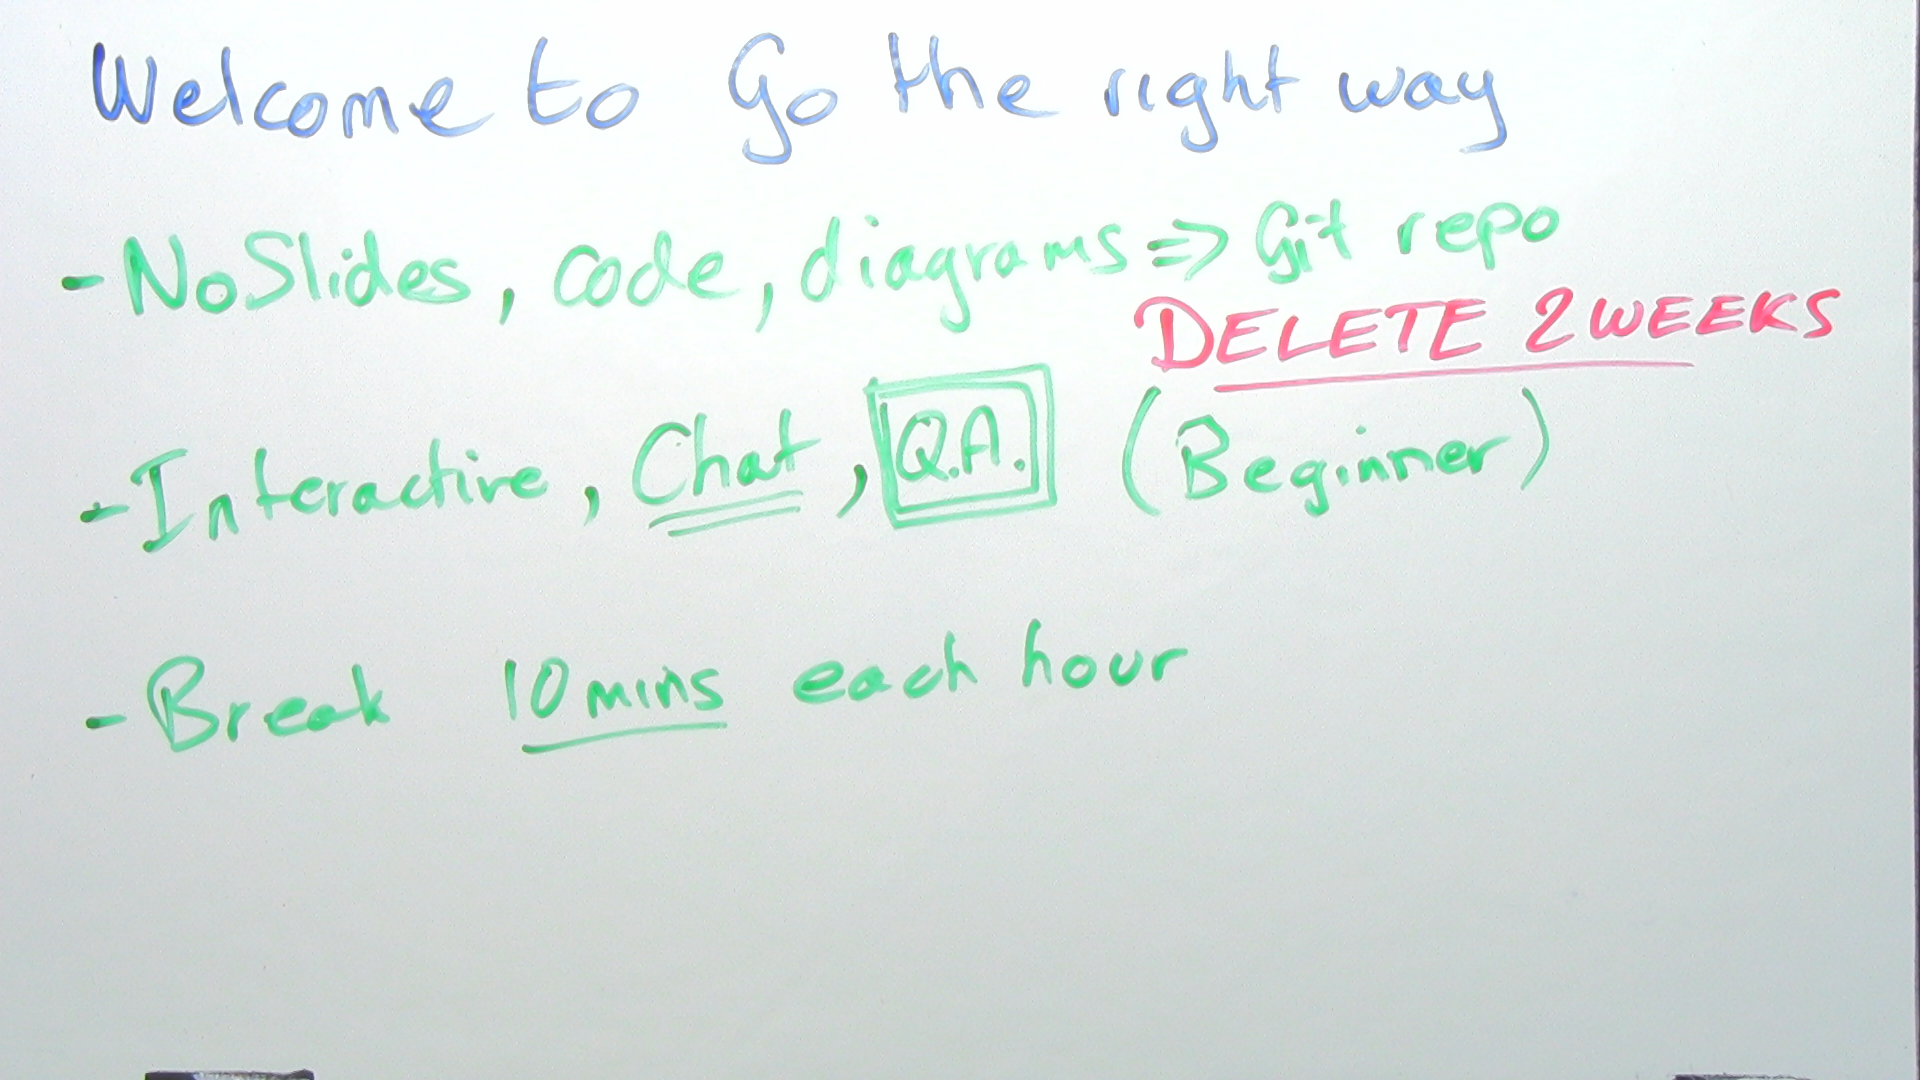 Welcome to Go the right way
- No Slides, code, diagrams => Git repo
DELETE 2 WEEKS
- Interactive, Chat, Q.A. (Beginner)
- Break 10 mins each hour